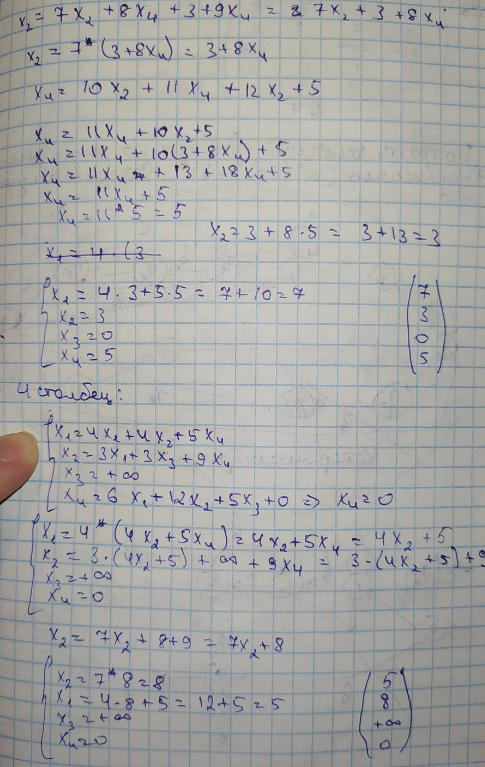 x₂ = 7x₂ + 8x₄ + 3 + 9x₄ = 7x₂ + 3 + 8x₄
x₂ = 7* (3+8x₄) = 3+8x₄
x₄ = 10x₂ + 11x₄ + 12x₂ + 5
x₄ = 11x₄ + 10x₂ + 5
x₄ = 11x₄ + 10(3+8x₄) + 5
x₄ = 11x₄ + 13 + 18x₄ + 5
x₄ = 11x₄ + 5
x₄ = 11* 5 = 5
x₂ = 3 + 8·5 = 3+13 = 3
x₁ = 4·(3
x₁ = 4·3+5·5 = 7+10 = 7
x₂ = 3
x₃ = 0
x₄ = 5
7
3
0
5
4 столбец:
x₁ = 4x₁ + 4x₂ + 5x₄
x₂ = 3x₁ + 3x₃ + 9x₄
x₃ = +∞
x₄ = 6x₁ + 12x₂ + 5x₃ + 0 => x₄ = 0
x₁ = 4* (4x₂ + 5x₄) = 4x₂ + 5x₄ = 4x₂ + 5
x₂ = 3·(4x₂+5) + ∞ + 9x₄ = 3·(4x₂+5)+9
x₃ = +∞
x₄ = 0
x₂ = 7x₂ + 8+9 = 7x₂ + 8
x₂ = 7* 8 = 8
x₁ = 4·8+5 = 12+5 = 5
x₃ = +∞
x₄ = 0
5
8
+∞
0